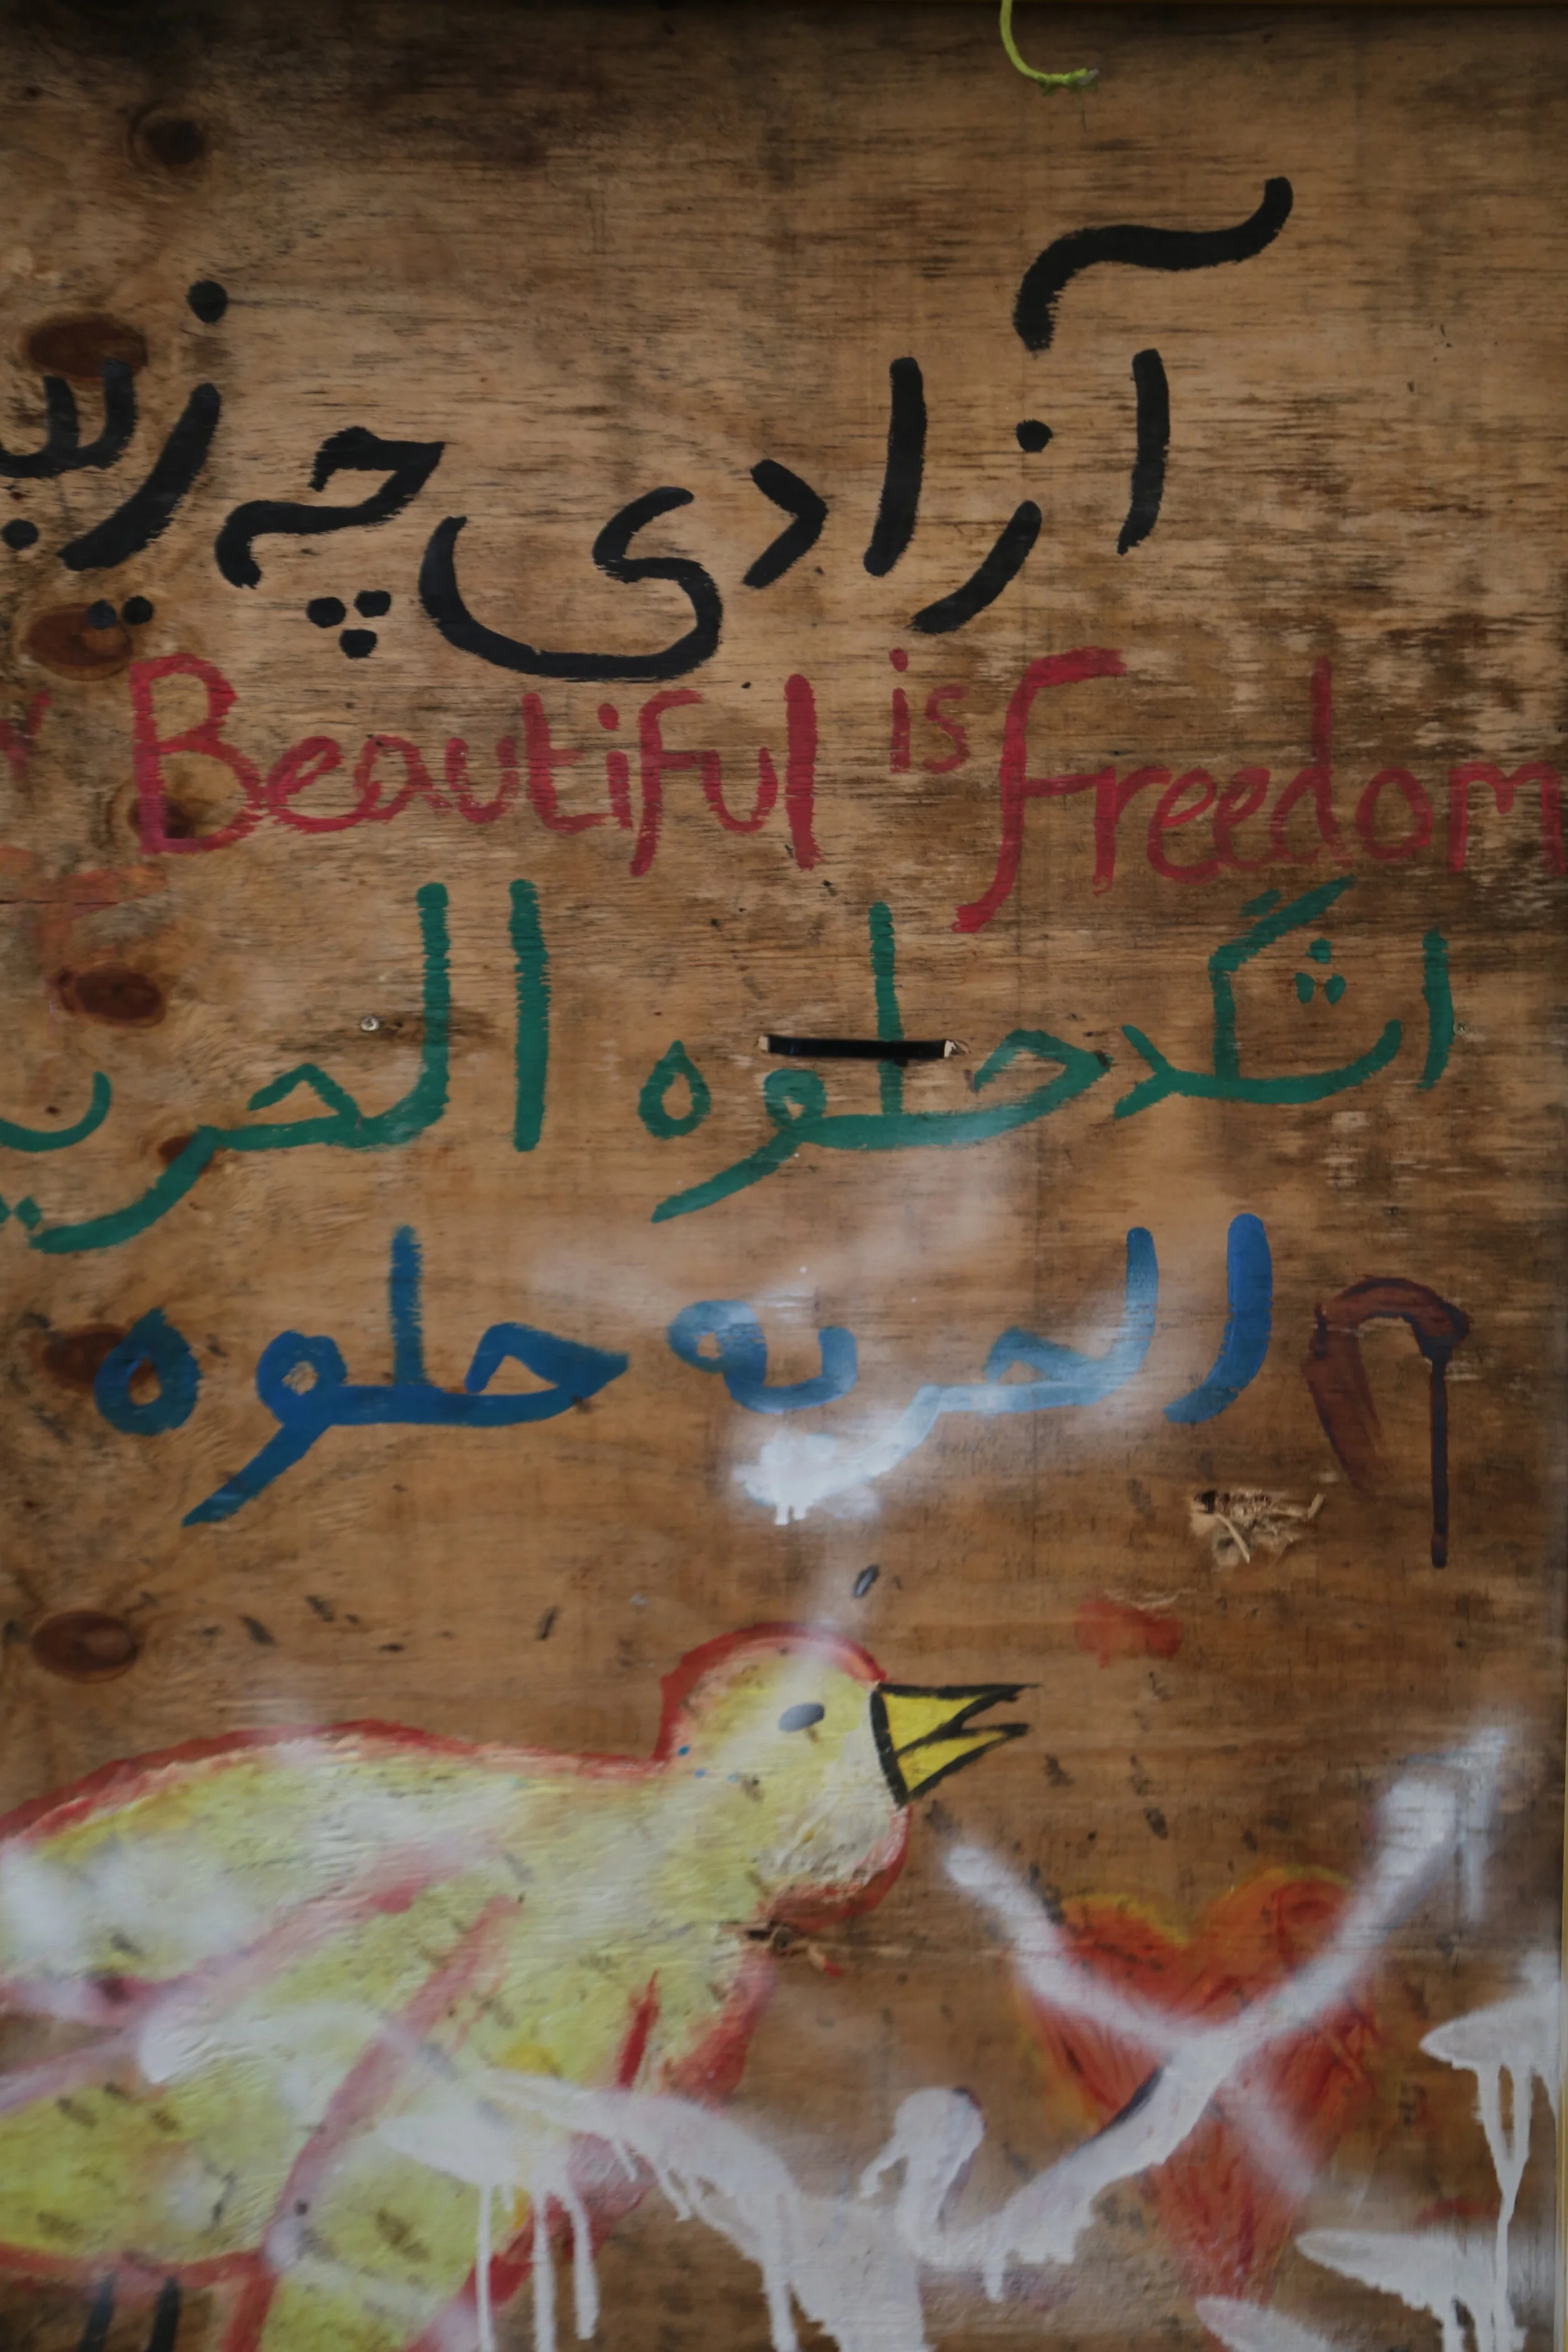 آزادی چه زیب
Beautiful is freedom
اشگد حلوه الحري
الحريه حلوه